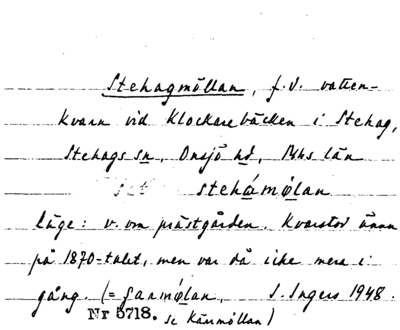 Stehagmöllan, f.d. vatten-
kvarn vid Klockarebäcken i Stehag,
Stehags sn, Onsjö hd, Mhs län
stehámølan
Läge: v. om prästgården. Kvarstod ännu
på 1870-talet, men var då icke mera i
gång. (= garnmølan, I. Ingers 1948.
Nr 5718. se Kärrmöllan)